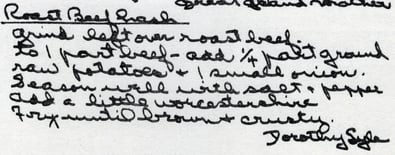 Great Grand Mother
Roast Beef Hash
Grind left over roast beef.
To 1 part beef - add 1/4 part ground
raw potatoes + 1 small onion.
Season well with salt + pepper
add a little worcestershire
Fry until brown + crusty.
Dorothy Lyle